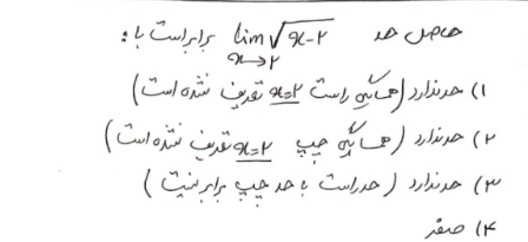 حاصل حد lim √x-۲ برابر است با :
x→۲
۱) حد ندارد (همسایگی راست x=۲ تعریف نشده است)
۲) حد ندارد (همسایگی چپ x=۲ تعریف نشده است)
۳) حد ندارد (حد راست با حد چپ برابر نیست)
۴) صفر